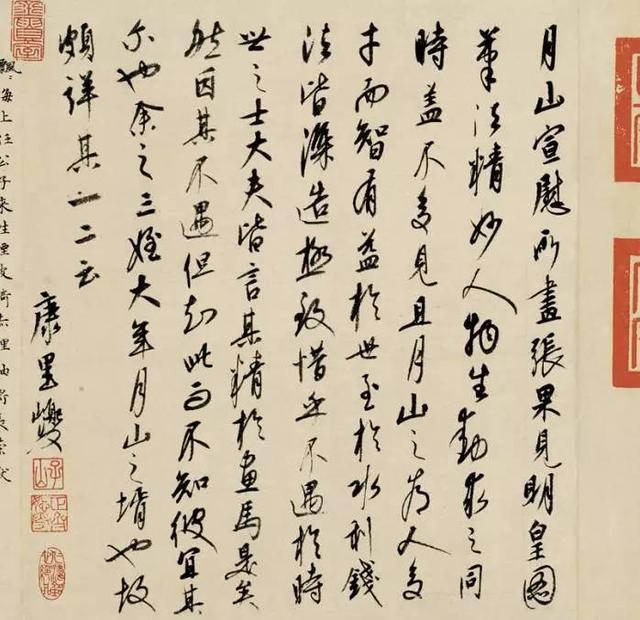 月山宣慰所畫張果見明皇圖
筆法精妙人物生動求之同
時蓋不多見且月山之為人多
才而智有益於世至於水利錢
法皆深造極致惜乎不遇於時
世之士大夫皆言其精於畫馬是矣
然因其不遇但知此而不知彼宜其
尔也余之三姪大年月山之壻也故
頗詳其一二云
康里巎
子山
飄〻海上任公子